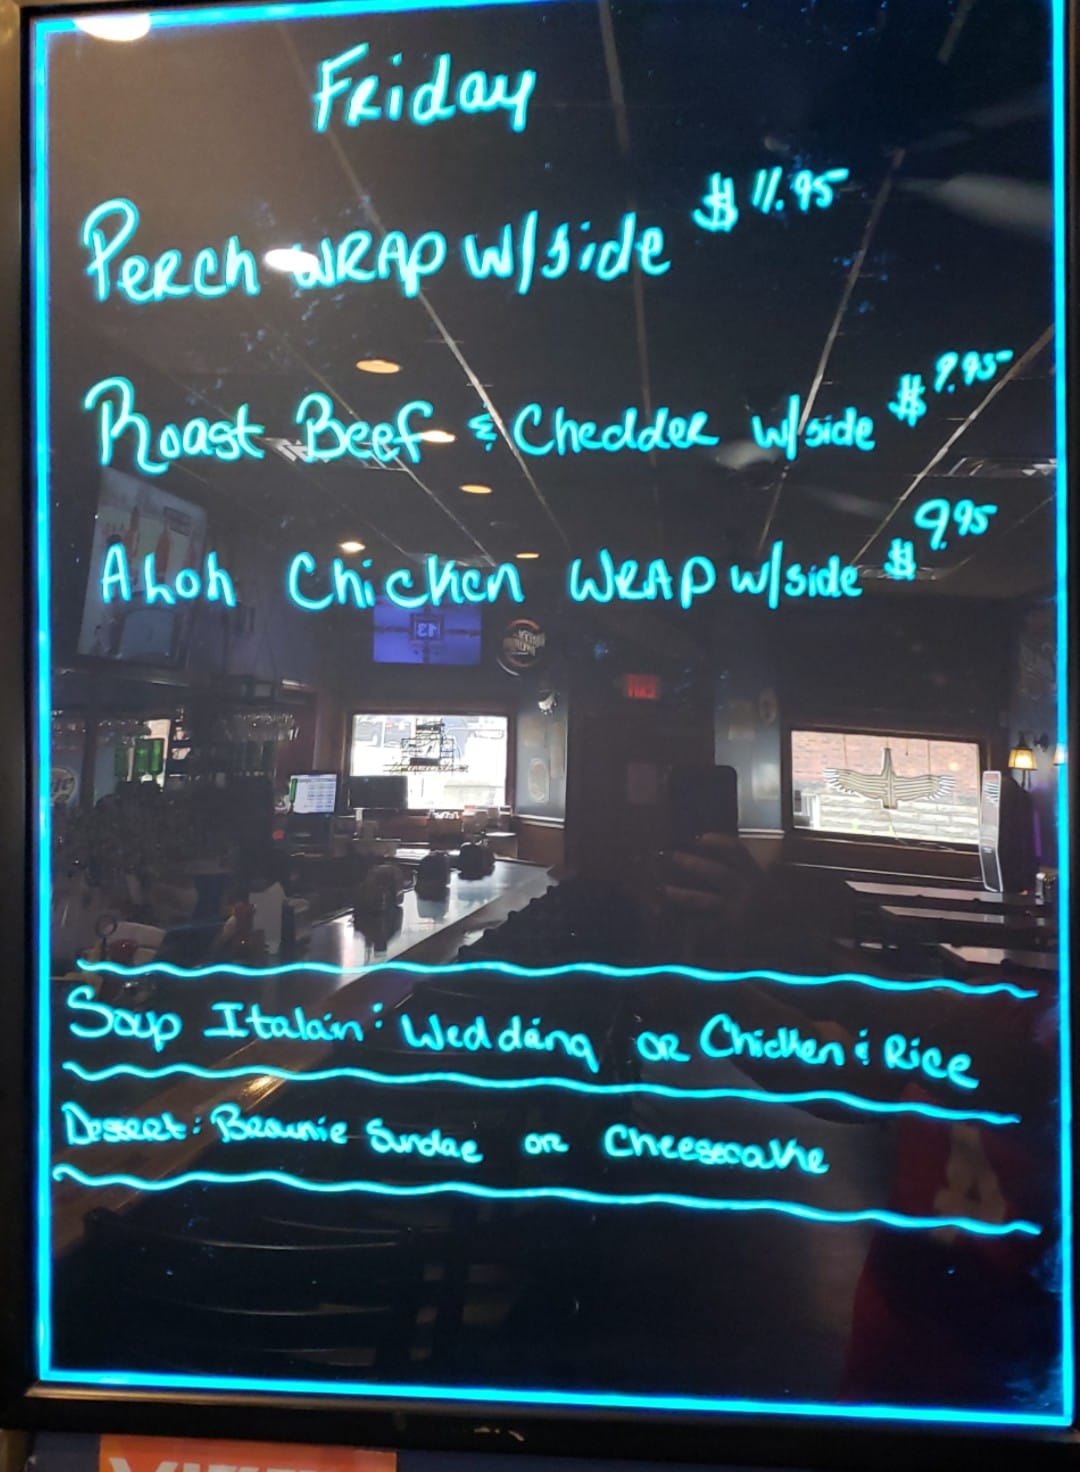 Friday
Perch WRAP w/side $11.95
Roast Beef & Chedder w/side $9.95
Ahoh Chicken WRAP w/side $9.95
Soup Italain: Wedding or Chicken & Rice
Dessert: Brownie Sundae or Cheesecake
13
EXIT